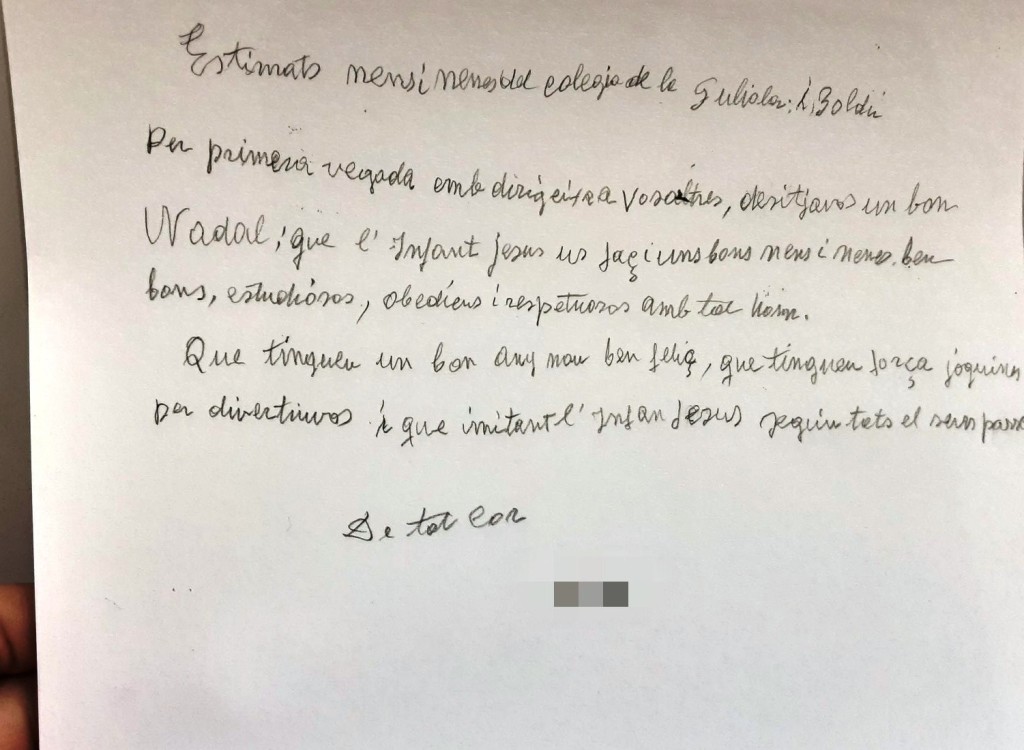 Estimats nens i nenes del colegio de la Guliola, i, Boldú
Per primera vegada emb dirigeixea vosaltres, desitjavos un bon
Nadal, i que l' Infant Jesus us façi uns bons nens i nenes. ben
bons, estudiosos, obediens i respetuosos amb tot hom.
Que tingueu un bon any nou ben feliç, que tingueu força joguines
per divertiuvos i que imitant l' Infan Jesus seguiu tots el seus
De tot cor